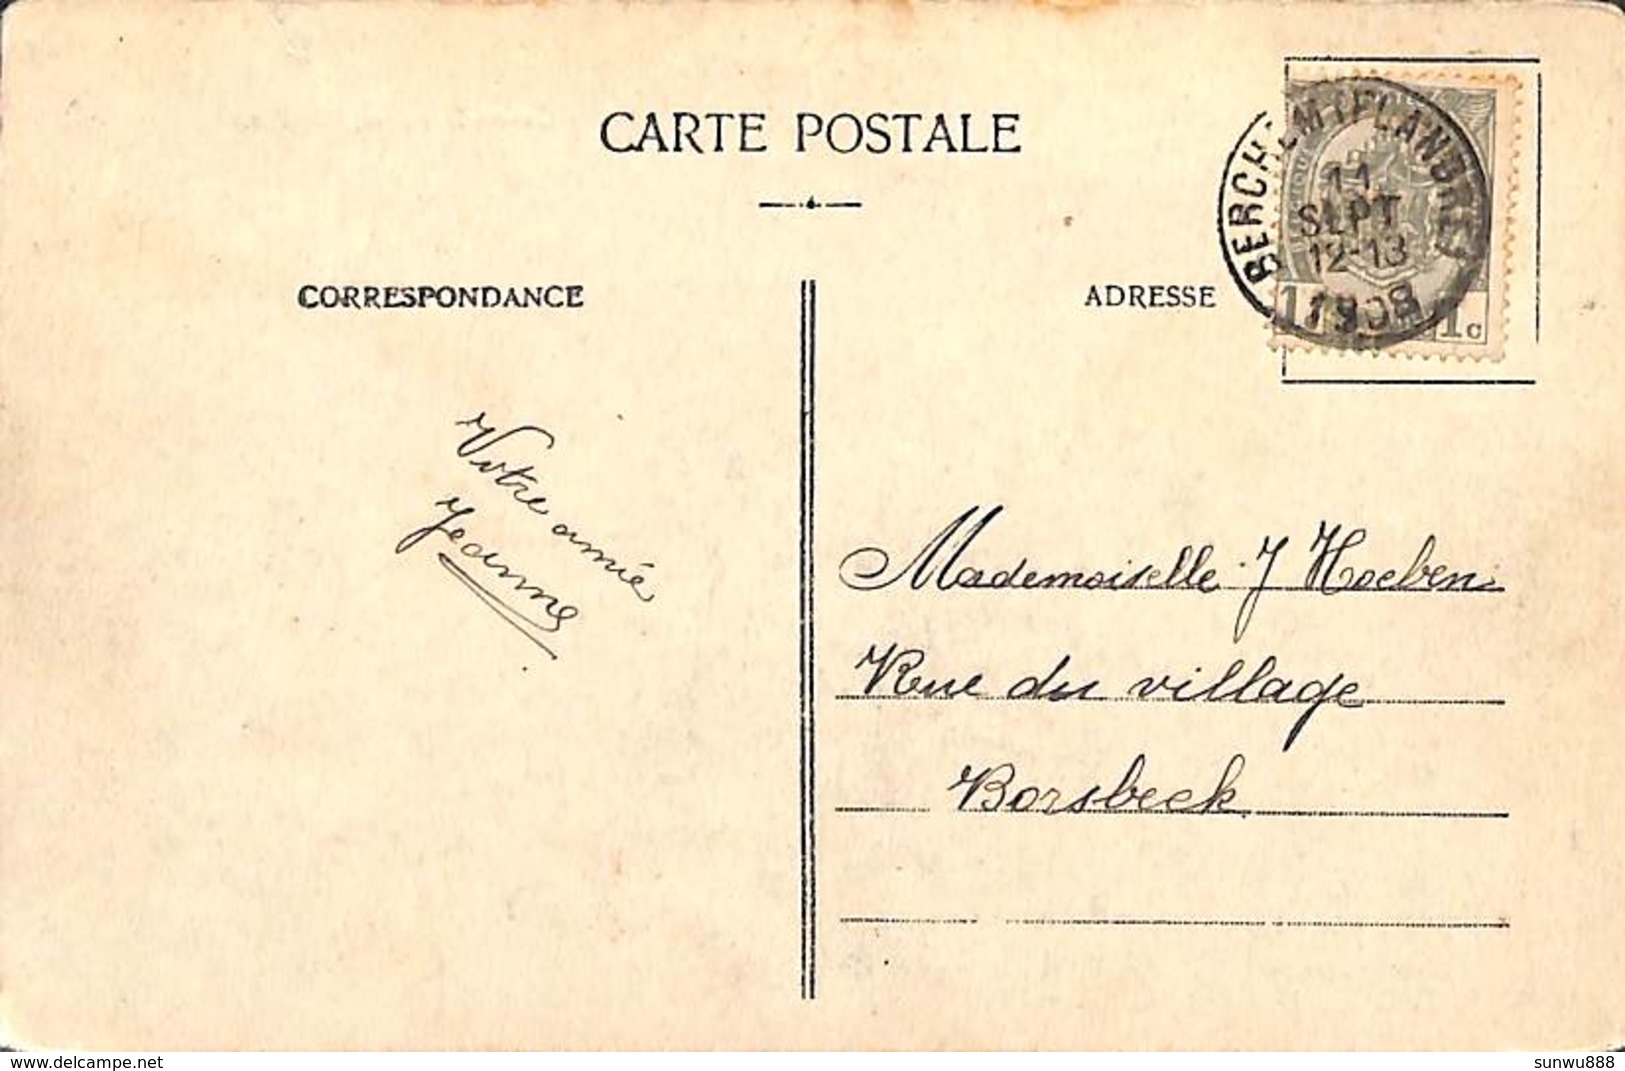 CARTE POSTALE
CORRESPONDANCE
ADRESSE
BERCHEM (FLANDRE)
11
SEPT
12-13
1908
1 1c
Votre amie
Jeanne
Mademoiselle J Hoeben
Rue du village
Borsbeek
www.delcampe.net
sunwu888